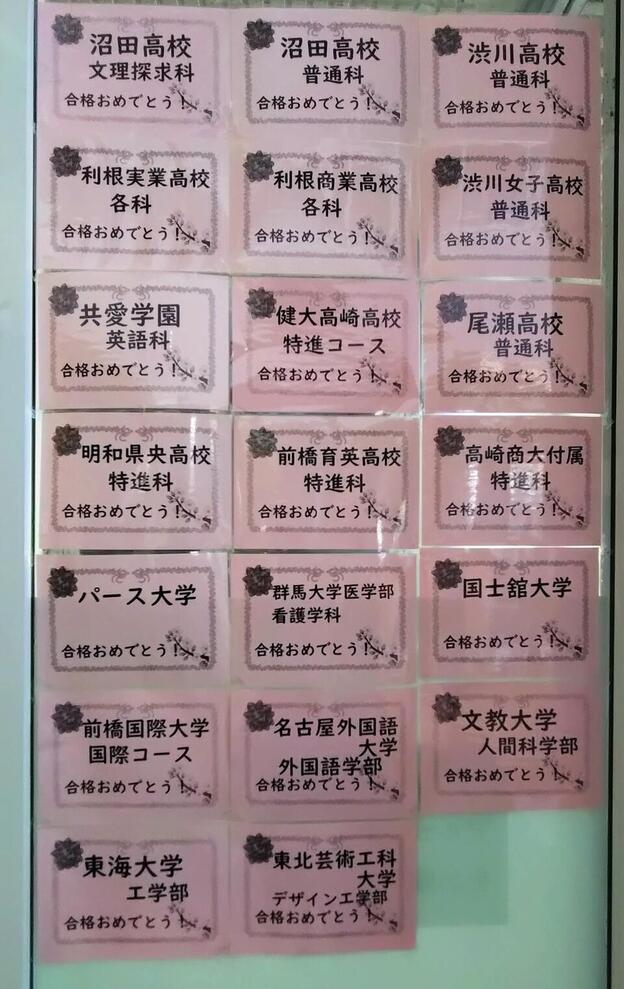 沼田高校
文理探求科
合格おめでとう！
沼田高校
普通科
合格おめでとう！
渋川高校
普通科
合格おめでとう！
利根実業高校
各科
合格おめでとう！
利根商業高校
各科
合格おめでとう！
渋川女子高校
普通科
合格おめでとう！
共愛学園
英語科
合格おめでとう！
健大高崎高校
特進コース
合格おめでとう！
尾瀬高校
普通科
合格おめでとう！
明和県央高校
特進科
合格おめでとう！
前橋育英高校
特進科
合格おめでとう！
高崎商大付属
特進科
合格おめでとう！
パース大学
合格おめでとう！
群馬大学医学部
看護学科
合格おめでとう！
国士舘大学
合格おめでとう！
前橋国際大学
国際コース
合格おめでとう！
名古屋外国語
大学
外国語学部
合格おめでとう！
文教大学
人間科学部
合格おめでとう！
東海大学
工学部
合格おめでとう！
東北芸術工科
大学
デザイン工学部
合格おめでとう！